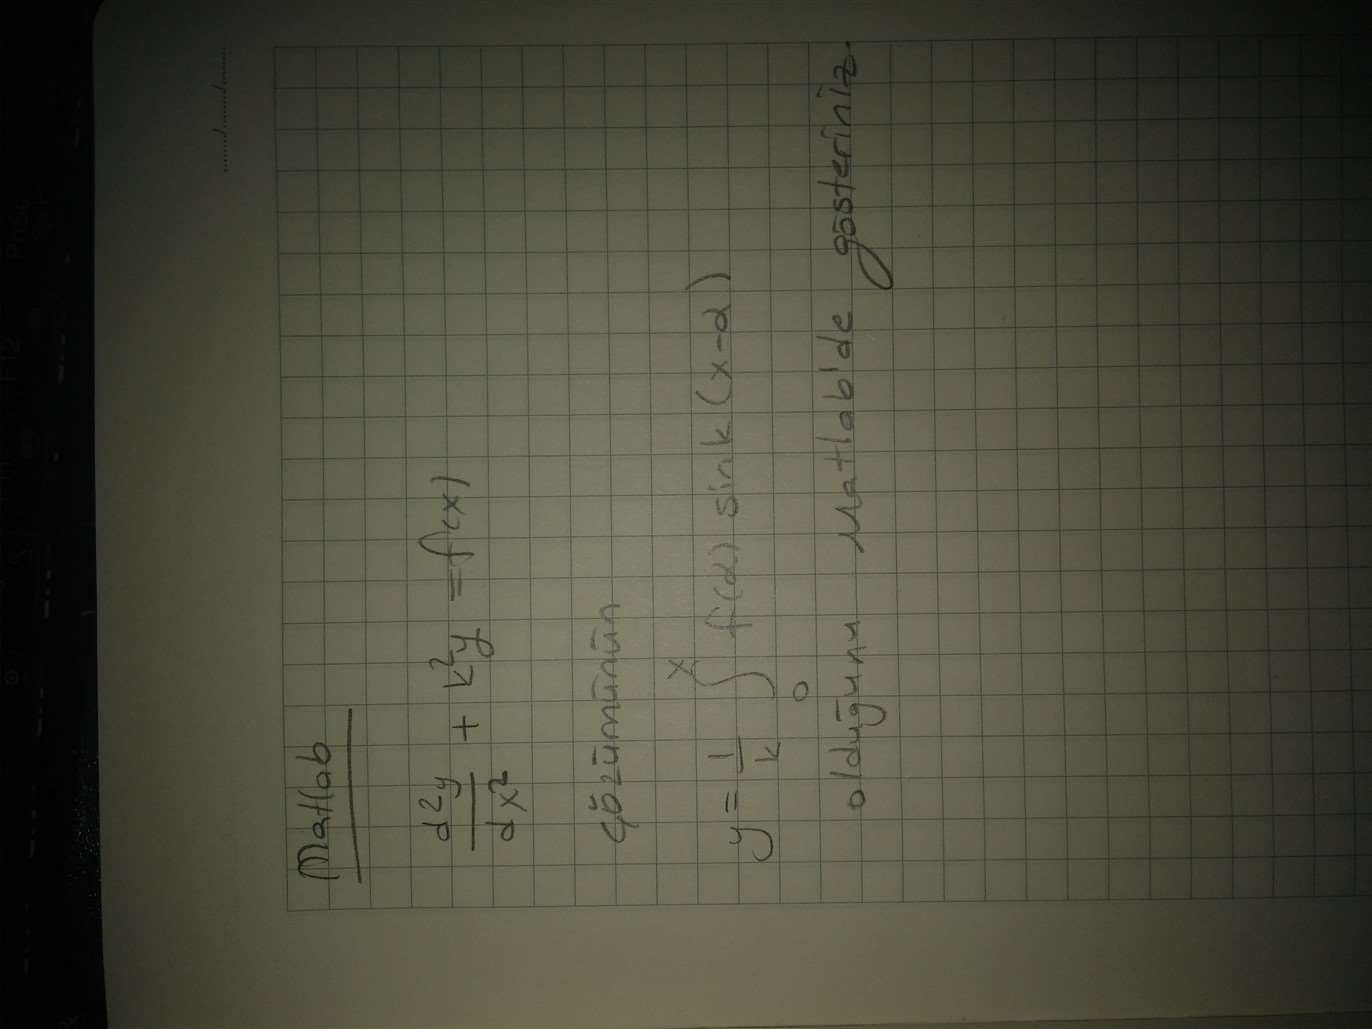 ...../...../.....
Matlab
d²y/dx² + k²y = f(x)
çözümünün
y = 1/k ∫₀ˣ f(α) sink(x-α)
olduğunu Matlab'de gösteriniz.